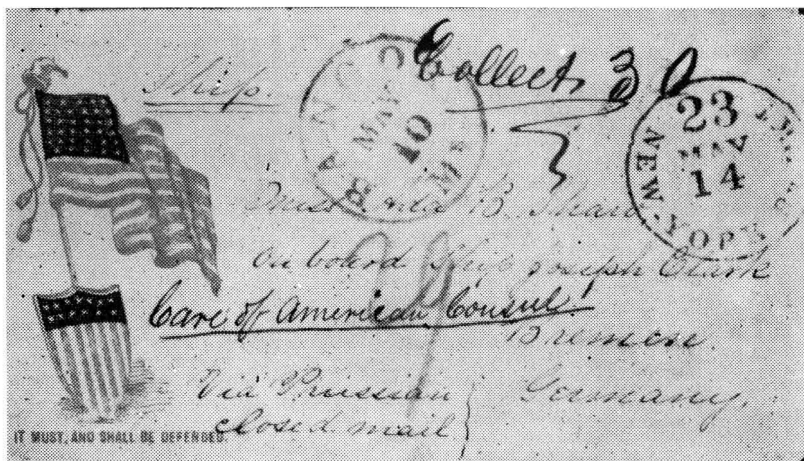 Ship.
Collect 30
BANGOR Me
MAY
10
23
MAY
14
NEW YORK
Miss B. Shaw
On board Ship Joseph Clark
Care of American Consul!
Bremen.
Germany.
Via Prussian
closed mail
IT MUST, AND SHALL BE DEFENDED.